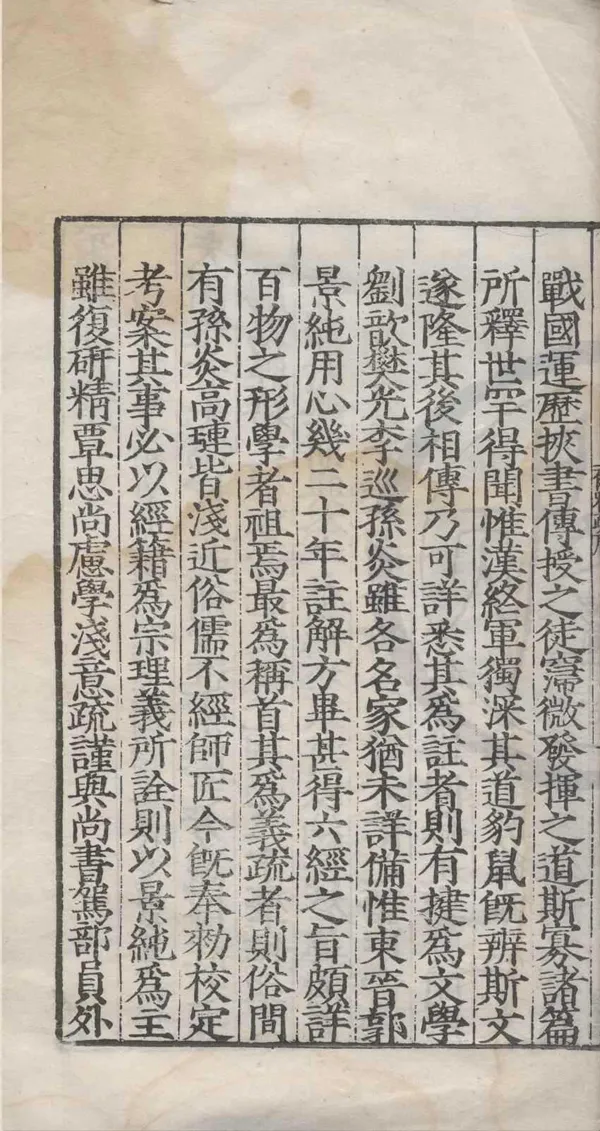 戰國運歷挾書傳授之徒寖微發揮之道斯寡諸篇
所釋世罕得聞惟漢終軍獨深其道豹鼠旣辨斯文
遂隆其後相傳乃可詳悉其爲註者則有揵爲文學
劉歆樊光李巡孫炎雖各名家猶未詳備惟東晉郭
景純用心幾二十年註解方畢甚得六經之旨頗詳
百物之形學者祖焉最爲稱首其爲義疏者則俗間
有孫炎高璉皆淺近俗儒不經師匠今旣奉勑校定
考案其事必以經籍爲宗理義所詮則以景純爲主
雖復研精覃思尚慮學淺意疏謹與尚書駕部員外